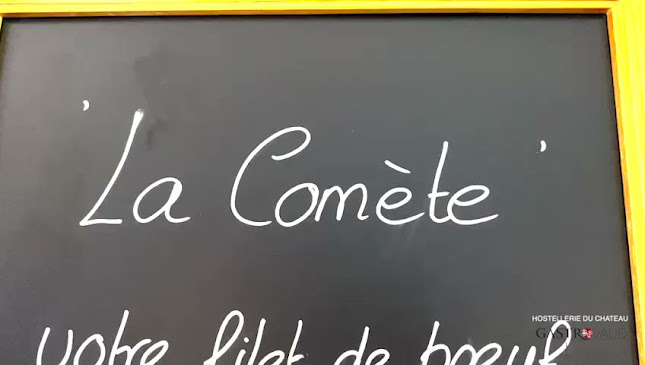 'La Comète'
votre filet de boeuf
HOSTELLERIE DU CHATEAU
GASTROVAUD